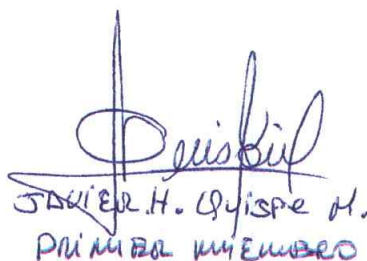 JAVIER. H. Quispe M.
PRIMER MIEMBRO